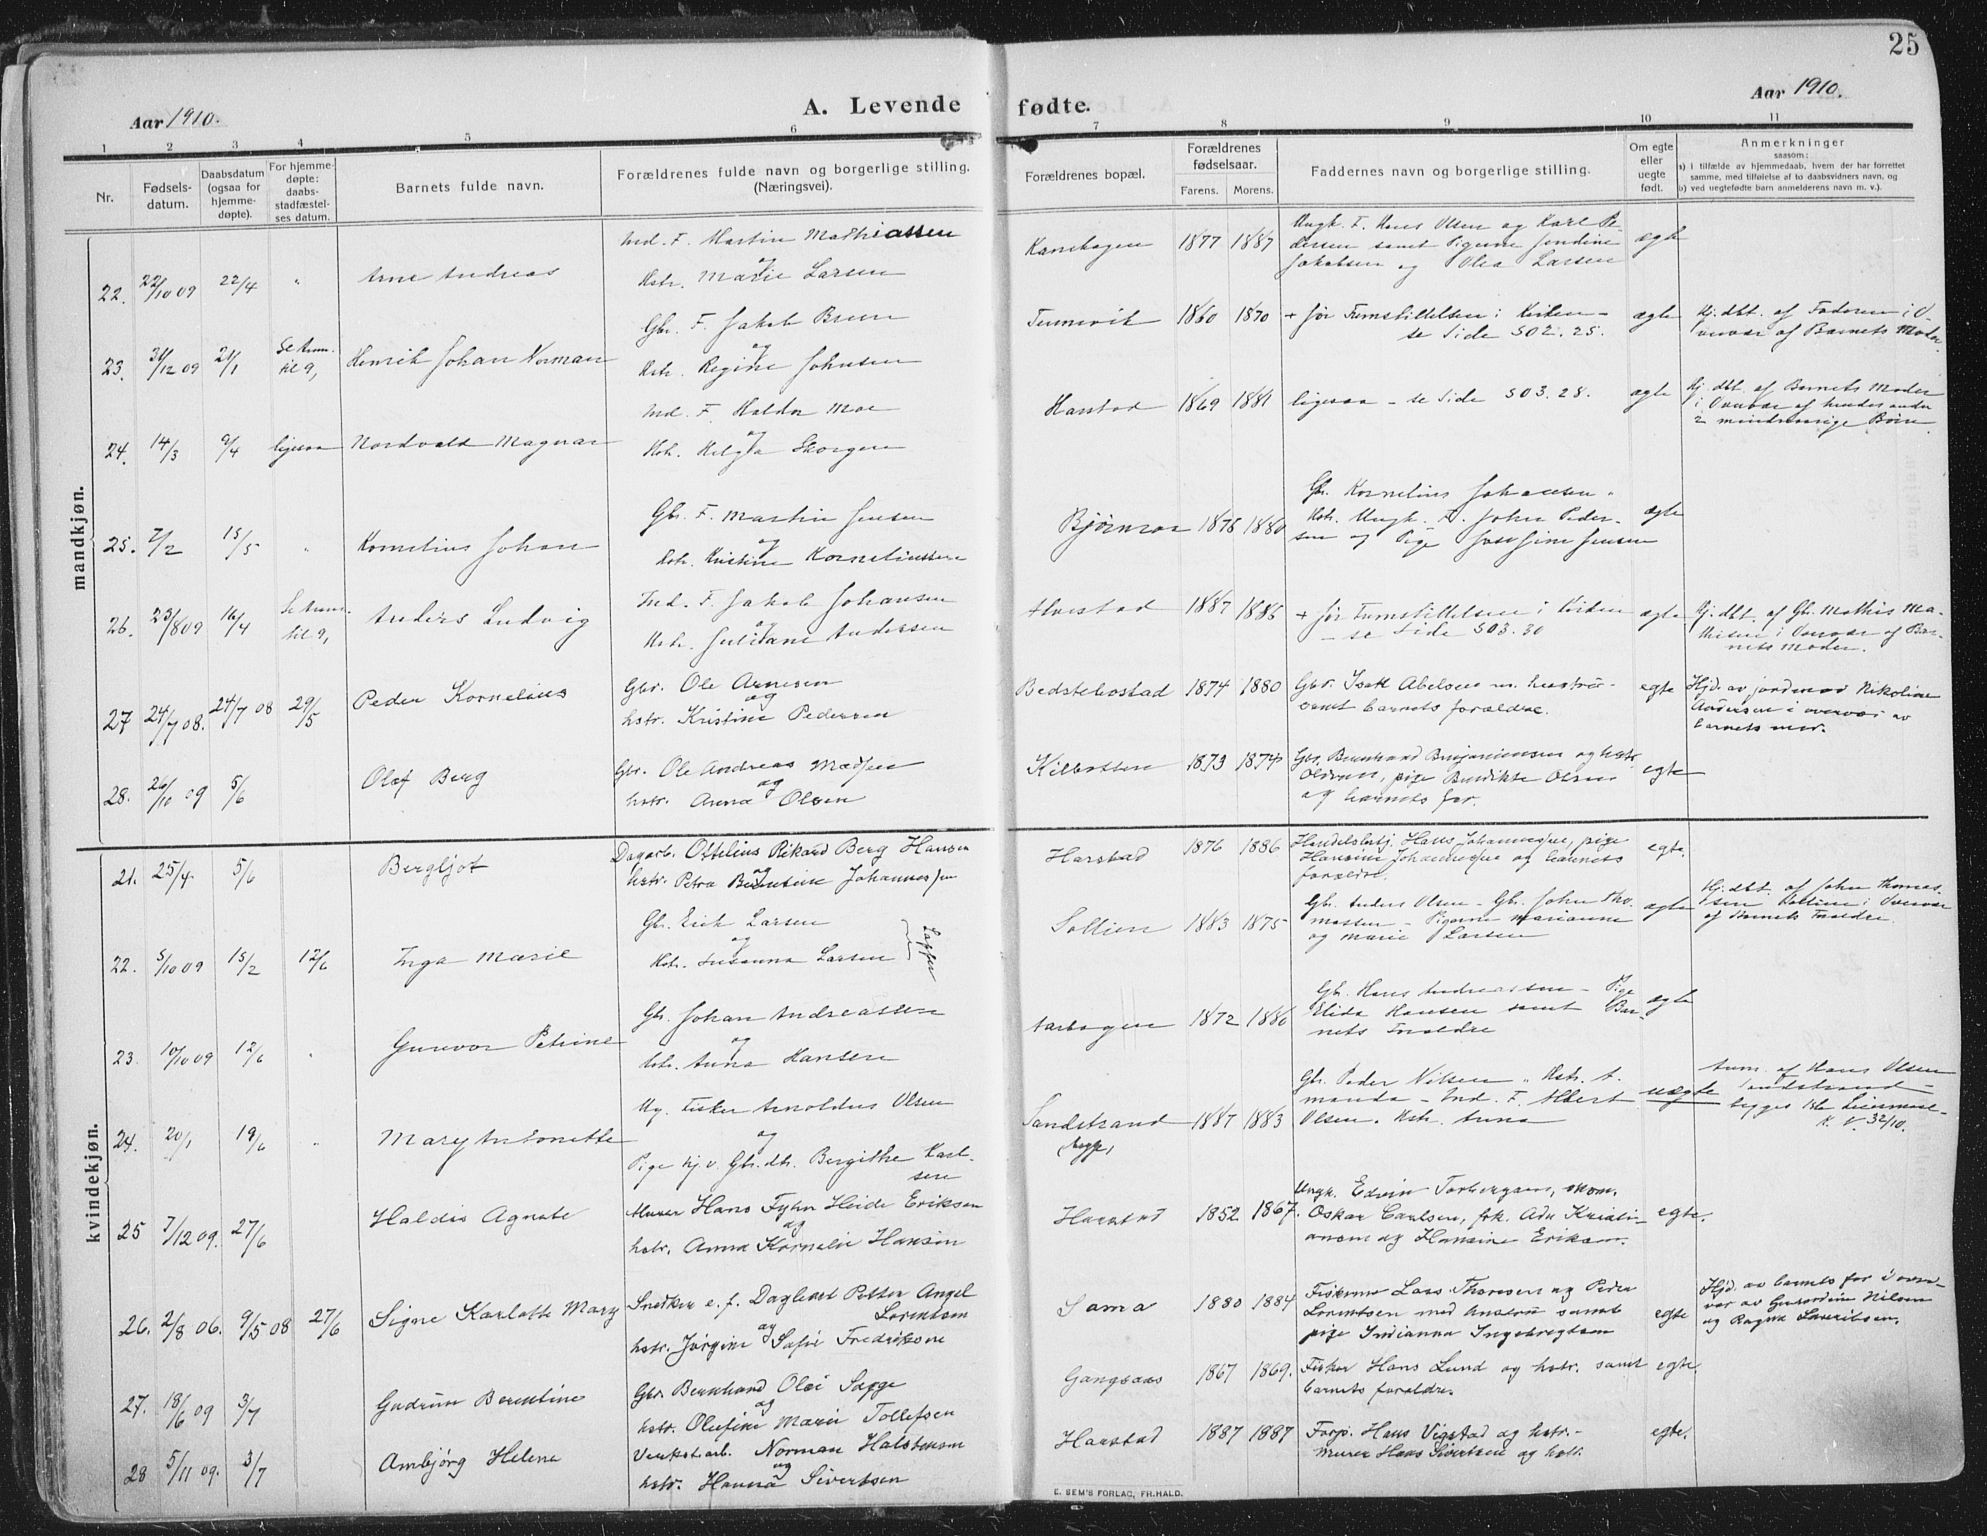 25
Aar 1910.
A. Levende fødte.
Aar 1910.
1 2 3 4 5 6 7 8 9 10 11
Nr.
Fødsels-
datum.
Daabsdatum
(ogsaa for
hjemme-
døpte).
For hjemme-
døpte:
daabs-
stadfæstel-
ses datum.
Barnets fulde navn.
Forældrenes fulde navn og borgerlige stilling.
(Næringsvei).
Forældrenes bopæl.
Forældrenes
fødselsaar.
Farens. Morens.
Faddernes navn og borgerlige stilling.
Om egte
eller
uegte
født.
Anmerkninger
saasom:
a) i tilfælde av hjemmedaab, hvem der har forrettet
samme, med tilføielse af to daabsvidners navn, og
b) ved uegtefødte barn anmelderens navn m. v.).
mandkjøn.
22. 22/10 09 22/4 " Arne Andreas
Ind. F. Martin Mathiassen
og
Hstr. Marie Larsen
Kanebogen 1877 1887
Ungk. F. Hans Olsen og Karl Pe-
dersen samt Pigerne Jendine
Jakobsen og Olea Larsen
ægte
23. 31/12 09 21/1 Se Anm. til 9, Henrik Johan Norman
Gbr. F. Jakob Bruun
og
Hstr. Regine Johnsen
Tennevik 1860 1870
+ før Fremstillelsen i Kirken -
se Side 502. 25.
ægte
Hj. dbt. af Faderen i O-
vervær af Barnets Moder.
24. 14/3 9/4 ligesaa Nordvald Magnar
Ind. F. Haldor Moe
og
Hstr. Helga Skorgen
Harstad 1869 1881
ligesaa - se Side 503. 28.
ægte
Hj. dbt. af Barnets Moder
i Overvær af hendes andre
2 mindreaarige Børn
25. 7/2 15/5 " Kornelius Johan
Gbr. F. Martin Jensen
og
Hstr. Kristine Korneliussen
Bjørnraa 1878 1880
Gbr. Kornelius Johansen.
Hstr. Ungk. F. John Peder-
sen og Pige Josefine Jensen
ægte
26. 23/8 09 16/4 Se Anm. til 9, Anders Ludvig
Ind. F. Jakob Johansen
og
Hstr. Juliane Andersen
Alvestad 1887 1885
+ før Fremstillelsen i Kirken
- se Side 503. 30
ægte
Hj. dbt. af Gbr. Mathis Ma-
thisen i Overvær af Bar-
nets Moder.
27 24/7 08. 24/7 08 29/5 Peder Kornelius
Gbr. Ole Arnesen
og
hstr. Kristine Pedersen
Bedstebostad 1874 1880
Gbr. Isak Abelsen m. hustru -
samt barnets forældre.
egte
Hjd. av jordmor Nikoline
Andersen i overvær av
barnets mor.
28. 26/10 09 5/6 Olaf Berg
Gbr. Ole Andreas Madsen
og
hstr. Anna Olsen
Kilbotten 1873 1874
Gbr. Bernhard Benjaminsen og hstr.
Oldrun, pige Bendikte Olsen
og barnets far.
egte
kvindekjøn.
21. 25/4. 5/6 Bergljot
Dagarb. Ottelius Rikard Berg Hansen
og
hstr. Petra Berntine Johannessen
Harstad 1876 1886
Handelsbetj. Hans Johannessen, pige
Hansine Johannessen og barnets
forældre.
egte.
22. 5/10 09 15/2 12/6 Inga Marie
Gbr. Erik Larsen
og
Hstr. Susanna Larsen
Lapper
Sollien 1883 1875
Gbr. Anders Olsen - Gbr. John Tho-
massen - Pigerne Marianne
og Marie Larsen
ægte
Hj. dbt. af John Thomas-
sen Sollien i Overvær
af Barnets Forældre.
23. 10/10 09 12/6 " Gunvor Petrine
Gbr. Johan Andreassen
og
Hstr. Anna Hansen
Aarbogen 1872 1886
Gbr. Hans Andreassen - Pige
Elida Hansen samt Bar-
nets Forældre
ægte
24. 20/1 19/6 " Mary Antonette
Ug. Fisker Arnoldus Olsen
og
Pige hj. v. Gbr. dtr. Bergithe Karl-
sen
Sandstrand
begge, 1887 1883
Gbr. Peder Nilsen " Hstr. A-
manda - Ind. F. Albert
Olsen. Hstr. Anna
uægte
Anm. af Hans Olsen
Sandstrand -
begges 1ste Leiermaal -
K. V. 32/10.
25 7/12 09. 27/6 Haldis Agnete
Murer Hans Fyhn Heide Eriksen
og
hstr. Anna Kornelie Hansen
Harstad 1852 1867.
Ungk. Edvin Torbergsen, skom.
Oskar Carlsen, frk. Ada Kristi-
ansen og Hansine Eriksen.
egte.
26. 2/8 06. 9/5 08 27/6 Signe Karlotte Mary
Snedker e. f. Dagleiet Petter Angel
Lorentsen
og
hstr. Jørgine Sofie Fredriksen
Sama 1880 1884
Fiskerne Lars Thoresen og Peder
Lorentsen med hustru samt
pige Indianna Ingebregtsen
egte
Hjd. av barnets far i over-
vær av Gunordine Nilsen
og Ragna Lauritsen.
27. 18/6 09 3/7 Gudrun Berntine
Gbr. Bernhard Olai Sagge
og
hstr. Olufine Marie Tollefsen
Gangsaas 1867 1869.
Fisker Hans Lund og hstr. samt
barnets forældre.
egte.
28 5/11 09. 3/7 Arnbjørg Helene
Verkstarb. Norman Halstensen
og
hstr. Hanna Sivertsen
Harstad 1887 1887
Forp. Hans Vigstad og hstr. -
murer Hans Sivertsen og hstr.
egte.
E. SEM'S FORLAG, FR.HALD.